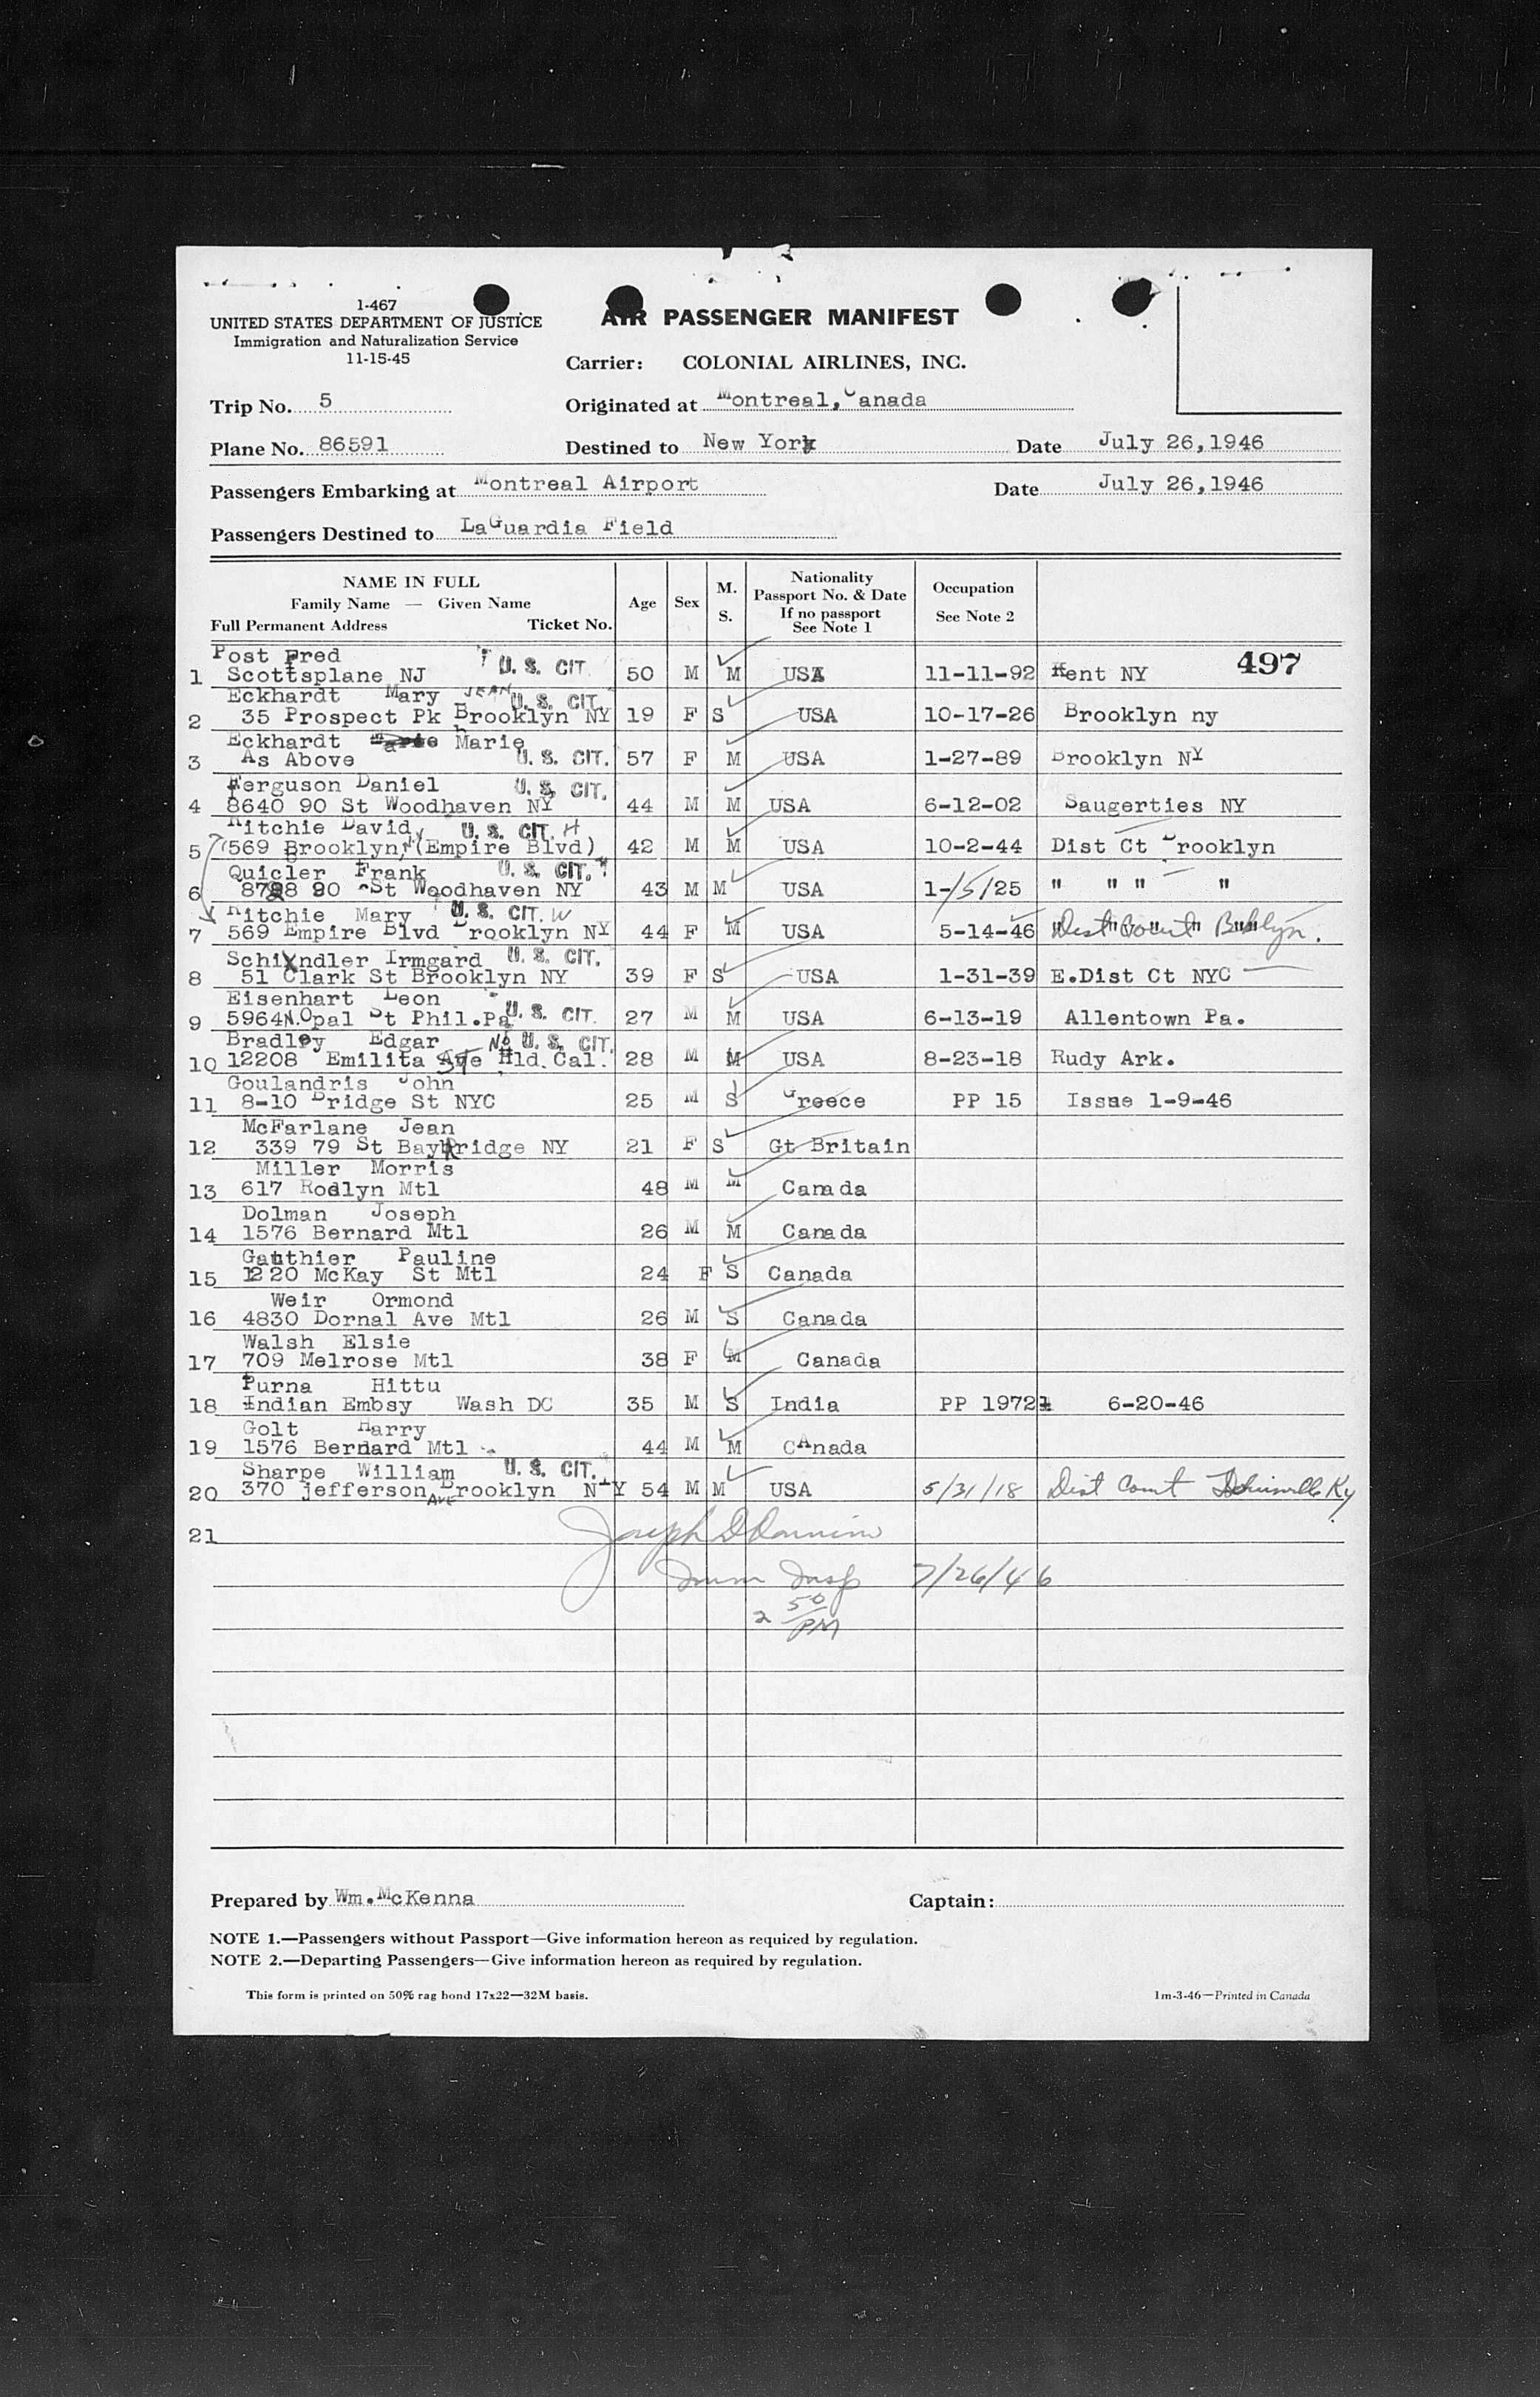 1-467
UNITED STATES DEPARTMENT OF JUSTICE
Immigration and Naturalization Service
11-15-45
AIR PASSENGER MANIFEST
Carrier: COLONIAL AIRLINES, INC.
Trip No. 5
Originated at Montreal, Canada
Plane No. 86591
Destined to New York
Date July 26,1946
Passengers Embarking at Montreal Airport
Date July 26,1946
Passengers Destined to LaGuardia Field
NAME IN FULL
Family Name — Given Name
Full Permanent Address Ticket No.
Age
Sex
M.
S.
Nationality
Passport No. & Date
If no passport
See Note 1
Occupation
See Note 2
497
Post Fred U. S. CIT.
1 Scottsplane NJ 50 M M USA 11-11-92 Kent NY
Eckhardt Mary JEAN U. S. CIT.
2 35 Prospect Pk Brooklyn NY 19 F S USA 10-17-26 Brooklyn ny
Eckhardt Marie
3 As Above U. S. CIT. 57 F M USA 1-27-89 Brooklyn NY
Ferguson Daniel U. S. CIT.
4 8640 90 St Woodhaven NY 44 M M USA 6-12-02 Saugerties NY
Ritchie David U. S. CIT. H
5 569 Brooklyn, (Empire Blvd) 42 M M USA 10-2-44 Dist Ct Brooklyn
Quicler Frank U. S. CIT.
6 8728 90 St Woodhaven NY 43 M M USA 1-/5/25 " " " "
Ritchie Mary U. S. CIT. W
7 569 Empire Blvd Brooklyn NY 44 F M USA 5-14-46 Dist Court Bklyn.
Schindler Irmgard U. S. CIT.
8 51 Clark St Brooklyn NY 39 F S USA 1-31-39 E.Dist Ct NYC
Eisenhart Leon
9 5964 N. Opal St Phil.Pa U. S. CIT. 27 M M USA 6-13-19 Allentown Pa.
Bradley Edgar No U. S. CIT.
10 12208 Emilita St Hld. Cal. 28 M M USA 8-23-18 Rudy Ark.
Goulandris John
11 8-10 Bridge St NYC 25 M S Greece PP 15 Issue 1-9-46
McFarlane Jean
12 339 79 St BayRridge NY 21 F S Gt Britain
Miller Morris
13 617 Roslyn Mtl 48 M M Canada
Dolman Joseph
14 1576 Bernard Mtl 26 M M Canada
Gauthier Pauline
15 1220 McKay St Mtl 24 F S Canada
Weir Ormond
16 4830 Dornal Ave Mtl 26 M S Canada
Walsh Elsie
17 709 Melrose Mtl 38 F M Canada
Purna Hittu
18 Indian Embsy Wash DC 35 M S India PP 19721 6-20-46
Golt Harry
19 1576 Bernard Mtl 44 M M CAnada
Sharpe William U. S. CIT.
20 370 jefferson AVE Brooklyn NY 54 M M USA 5/31/18 Dist Court Ky
21
Joseph
Imm Insp 7/26/46
2 50
PM
Prepared by Wm. McKenna
Captain:
NOTE 1.—Passengers without Passport—Give information hereon as required by regulation.
NOTE 2.—Departing Passengers—Give information hereon as required by regulation.
This form is printed on 50% rag bond 17x22—32M basis.
1m-3-46—Printed in Canada